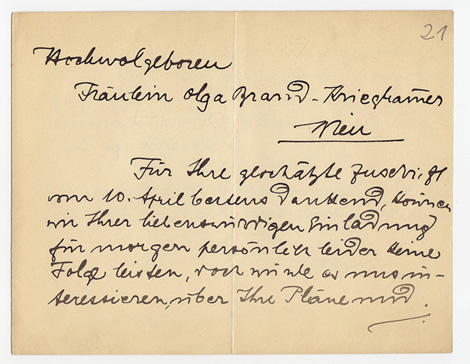 21
Hochwolgeboren
Fräulein Olga Brand-Krieghamer
Wien
Für Ihre geschätzte Zuschrift
vom 10. April bestens dankend, können
wir Ihrer liebenswürdigen Einladung
für morgen persönlich leider keine
Folge leisten, doch würde es uns in-
teressieren, über Ihre Pläne und